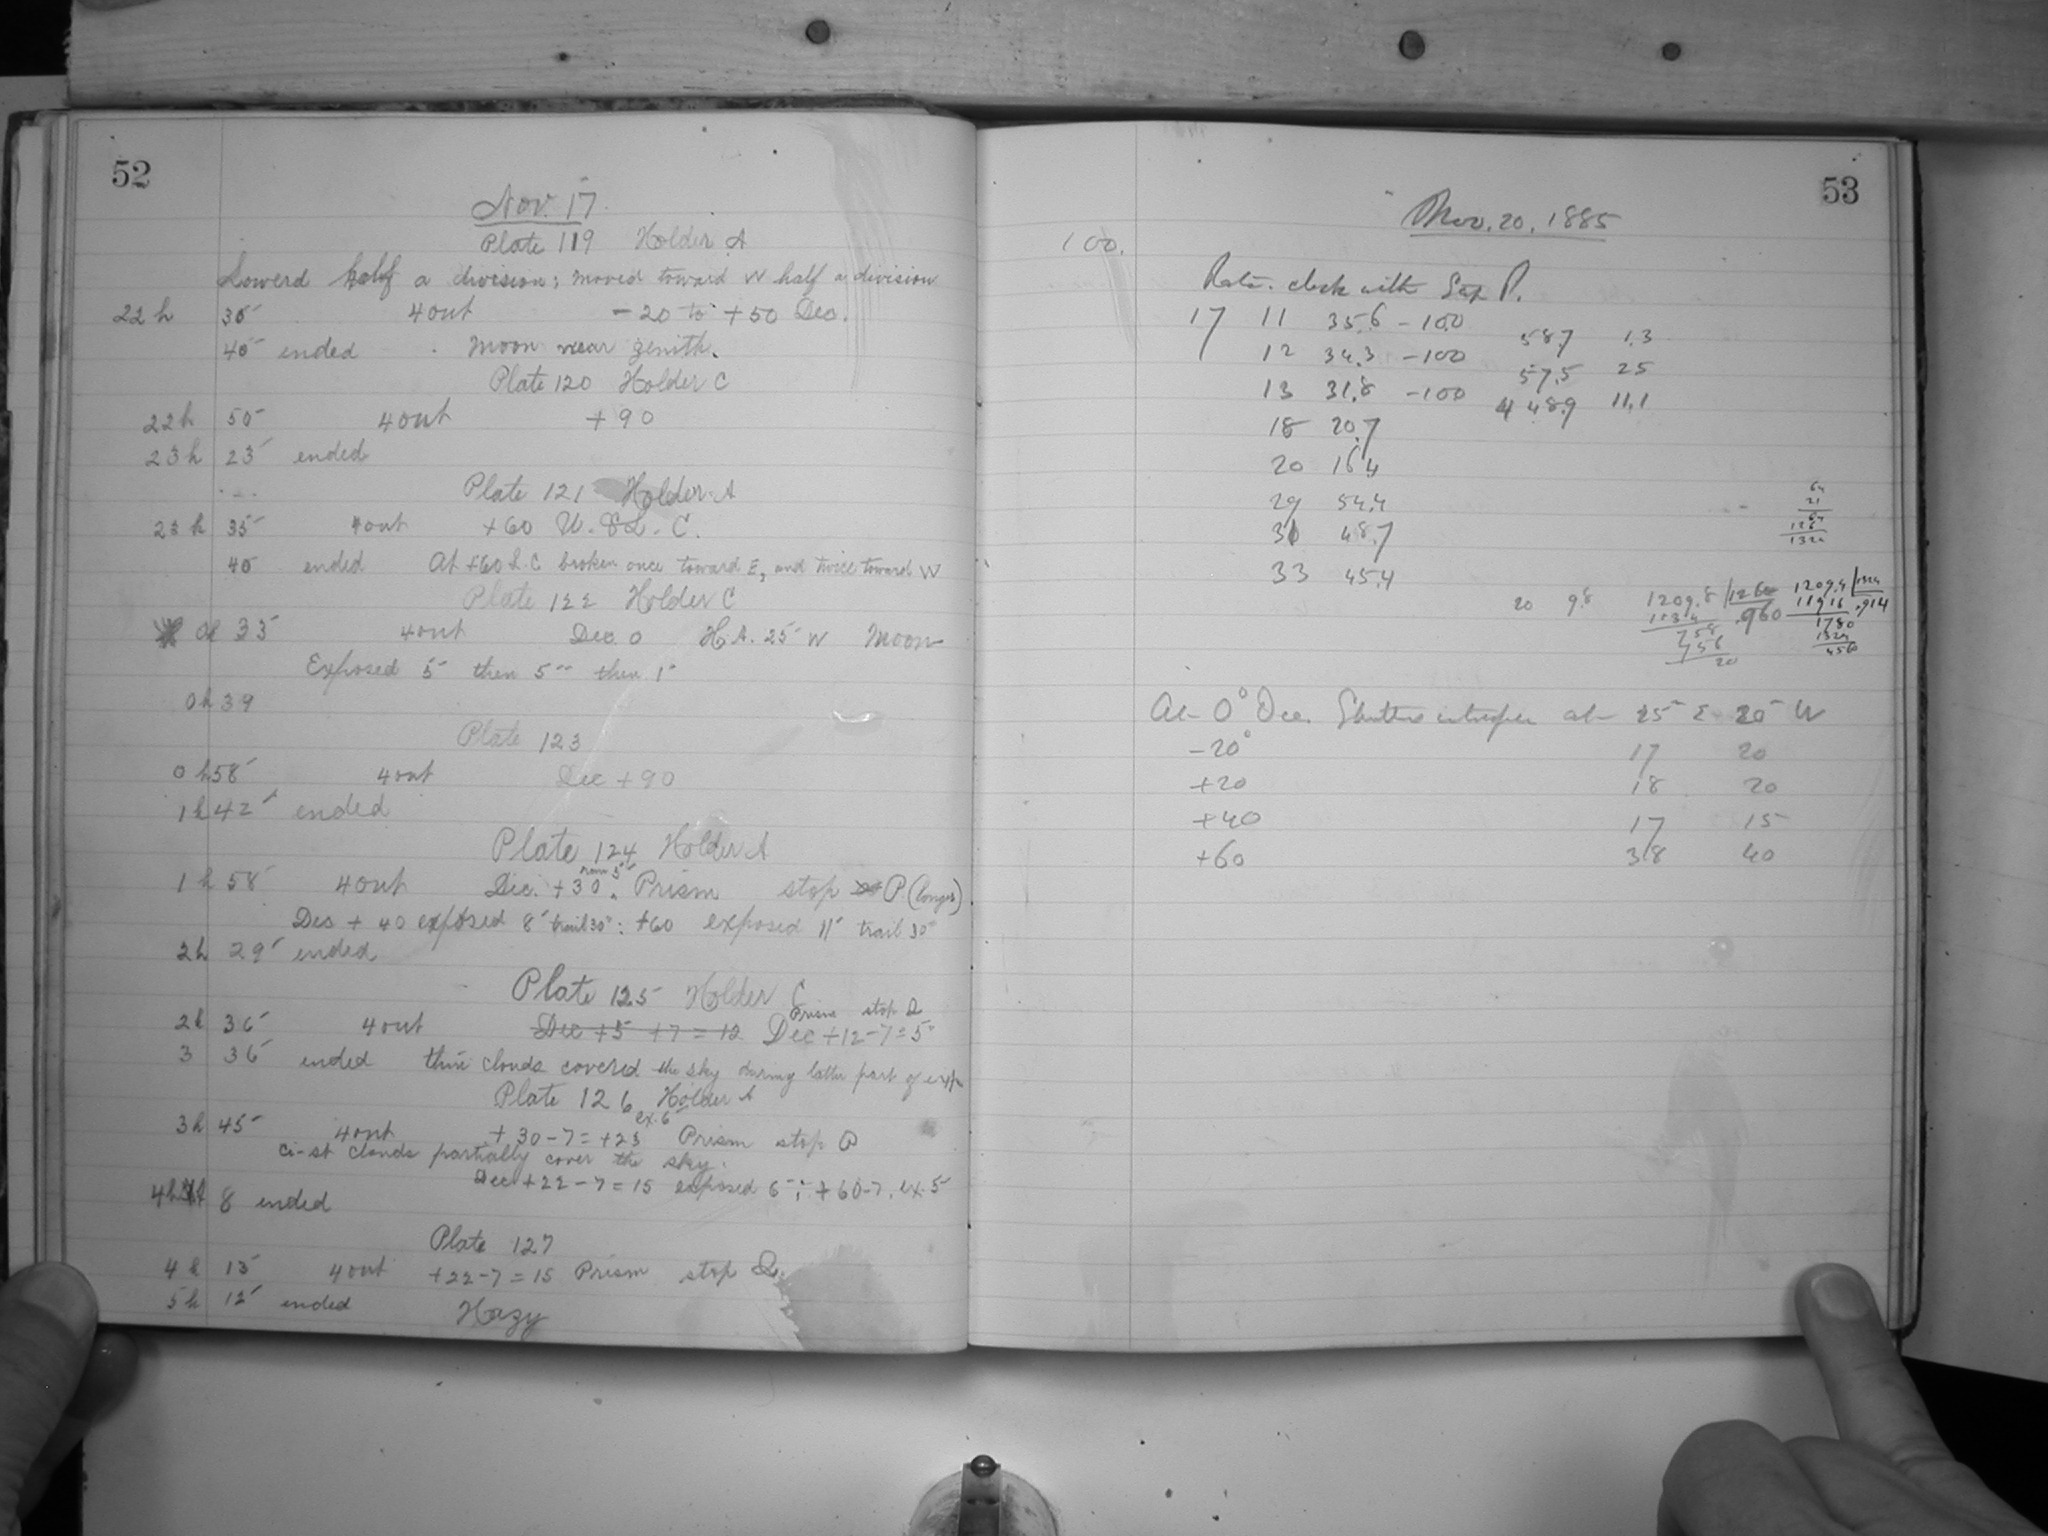 52
Nov. 17.
Plate 119 Holder A
Lowerd half a division; moved toward W half a division
22h 35 4out -20 to +50 Dec.
40 ended Moon near zenith.
Plate 120 Holder C
22h 50 4out +90
23h 23 ended
Plate 121 Holder A
23h 35 4out +60 U. & L. C.
40 ended At +60 L.C broken once toward E, and twice toward W
Plate 122 Holder C
0h 33 4out Dec. 0 H.A. 25 W Moon
Exposed 5 then 5 then 1
0h 39
Plate 123
0h 58 4out Dec +90
1h 42 ended
Plate 124 Holder A
1h 58 4out Dec. +30. Prism stop P (longer)
Dec + 40 exposed 8' trail 30": +60 exposed 11' trail 30"
2h 29 ended
Plate 125 Holder C
Prism stop Q
2h 36 4out Dec +5 +7 = 12 Dec +12-7=5°
3 36 ended thin clouds covered the sky during latter part of exp.
Plate 126 Holder A
ex. 6
3h 45 4out +30-7=+23 Prism stop P
Ci-st clouds partially cover the sky.
Dec +22-7=15 exposed 6; +60-7, ex. 5
4h 8 ended
Plate 127
4h 13 4out +22-7=15 Prism stop Q.
5h 12 ended Hazy
53
Nov. 20, 1885
100.
Rate. clock with
17 11 35.6 -100 58.7 1.3
12 34.3 -100 57.5 25
13 31.8 -100 48.9 11.1
18 20.7
20 16.4
29 54.4
31 48.7
33 45.4
20 9.8 1209.8 1260 .960
1209.4 1324 .914
11916
1780
1324
456
At 0° Dec. Shutter at 25 E 20 W
-20° 17 20
+20 18 20
+40 17 15
+60 38 40